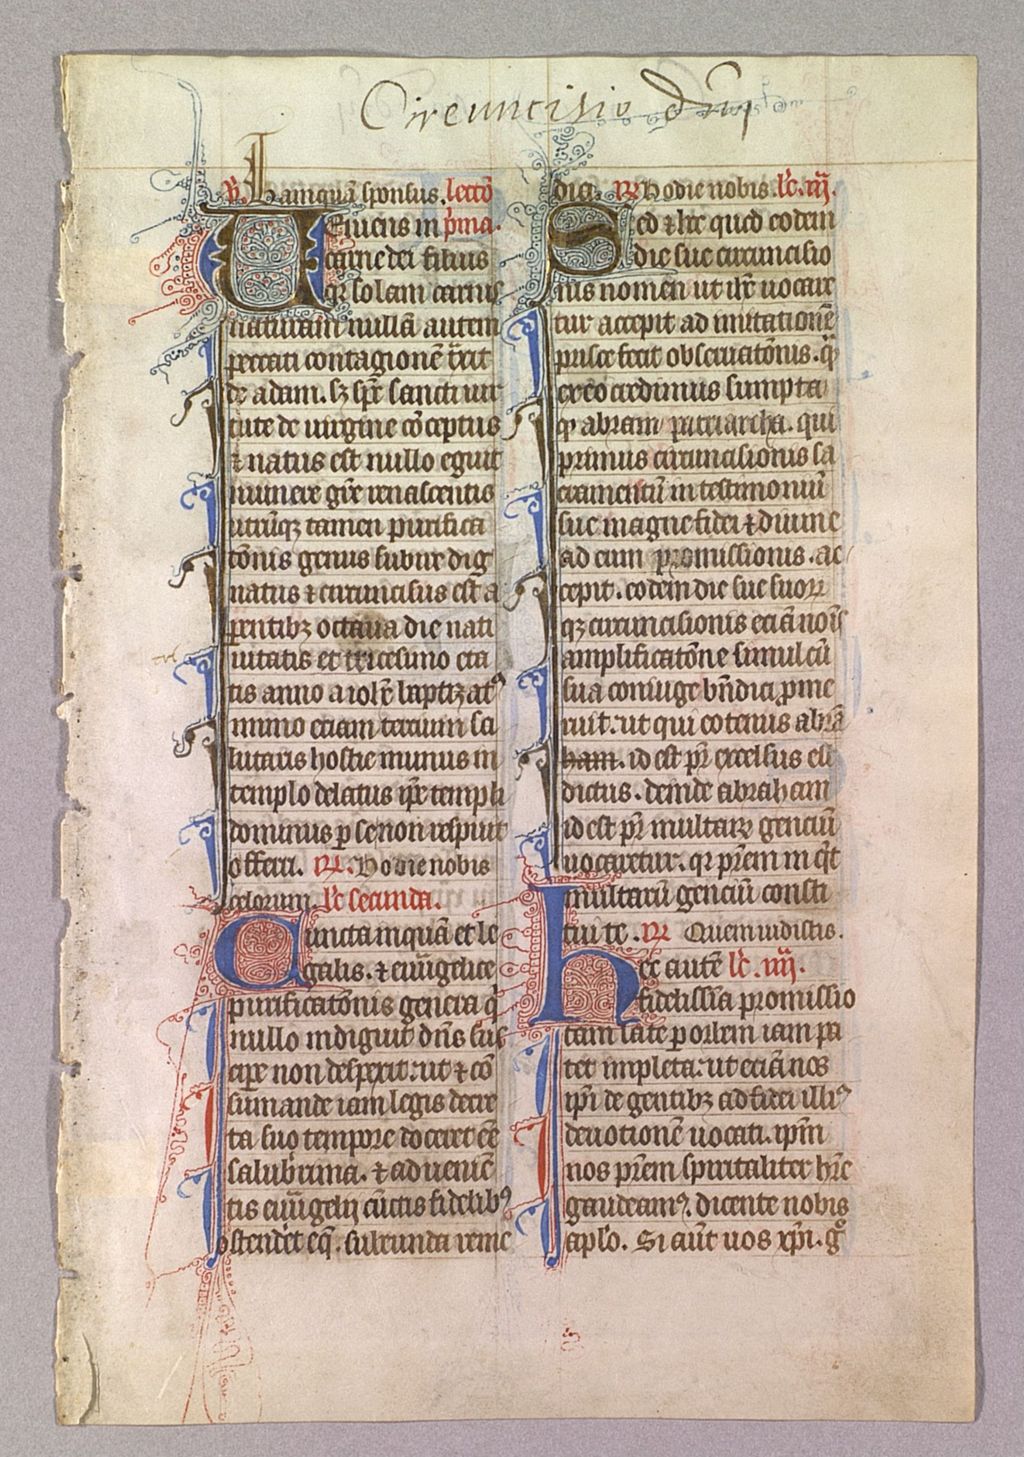 Circuncisio dnj
V. Tamquã sponsus. lecco
VEniens in p̃ma.
carne dei filius
qr̃ solam carnis
naturam nullã autem
peccati contagionẽ t̃xit
de adam. sʒ sp̃e sancti uir
tute de uirgine cõceptus
⁊ natus est nullo eguit
munere gr̃e renascentis
utrũqʒ tamen purifica
cõnis genus subire dig
natus ⁊ circuncisus est a
parentibʒ octaua die nati
uitatis et tricesimo eta
tis anno a ioħe baptizatꝰ
immo eciam tercium sa
lutaris hostie munus in
templo delatus qͥ erat templi
dominus p se non respuit
offerri. R̃. Hodie nobis
celorum. lc̃ secunda.
Cuncta inquã et le
galis. ⁊ euãgelice
purificatõnis genera qͥ
nullo indiguit dñs sus
cipe non despexit. ut ⁊ cõ
sumande iam legis decre
ta suo tempore doceret eẽ
saluberima. ⁊ aduenie
tis euãgelij cũctis fidelibꝰ
ostenderet eqͤ. subeunda reme
dia. R̃ Hodie nobis. lc̃. iij.
Sed ⁊ hic quod eodem
die sue circuncisio
nis nomen ut iħc uocare
tur accepit ad imitationẽ
prisce fecit obseruatõnis. qͣ
ex eo credimus sumpta
qͩ abram patriarcha. qui
primus circuncisionis sa
cramentũ in testimoniũ
sue magne fidei ⁊ diuine
ad eum promissionis. ac
cepit. eodem die sue suorũ
qʒ circuncisionis eciã nois
amplificatõne simul cũ
sua coniuge bñdici prome
ruit. ut qui eotenus abrã
ham. id est pr̃ excelsus est
dictus. deinde abraham
id est pr̃ multarũ genciũ
uocaretur. qr̃ pr̃em inq̃t
multarũ genciũ consti
tui te. R̃ Quem uidistis.
Hec autẽ lc̃. iiij.
fidelissĩa promissio
tam late p orbem iam pa
tet impleta. ut eciã nos
ip̃i de gentibʒ ad fidei illiꝰ
deuotionẽ uocati. ip̃m
nos pr̃em spiritaliter hr̃e
gaudeamꝰ. dicente nobis
apl̃o. Si aũt uos xp̃i. gͦ